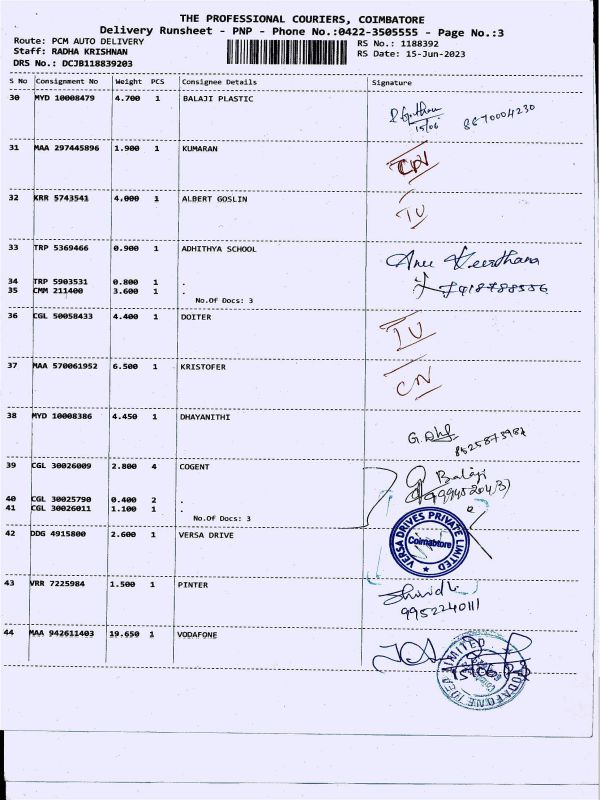 THE PROFESSIONAL COURIERS, COIMBATORE
Delivery Runsheet - PNP - Phone No.:0422-3505555 - Page No.:3
Route: PCM AUTO DELIVERY RS No.: 1188392
Staff: RADHA KRISHNAN RS Date: 15-Jun-2023
DRS No.: DCJB118839203
S No Consignment No Weight PCS Consignee Details Signature
30 MYD 10008479 4.700 1 BALAJI PLASTIC
15/06 8870004230
31 MAA 297445896 1.900 1 KUMARAN
CN
32 KRR 5743541 4.000 1 ALBERT GOSLIN
IU
33 TRP 5369466 0.900 1 ADHITHYA SCHOOL
Anu Keerthana
34 TRP 5903531 0.800 1 .
35 CMM 211400 3.600 1 .
No.Of Docs: 3
36 CGL 50058433 4.400 1 DOITER
IU
37 MAA 570061952 6.500 1 KRISTOFER
CN
38 MYD 10008386 4.450 1 DHAYANITHI
39 CGL 30026009 2.800 4 COGENT
Balaji
40 CGL 30025790 0.400 2 .
41 CGL 30026011 1.100 1 .
No.Of Docs: 3
42 DDG 4915800 2.600 1 VERSA DRIVE
VERSA DRIVES PRIVATE LIMITED
Coimbatore
43 VRR 7225984 1.500 1 PINTER
9952240111
44 MAA 942611403 19.650 1 VODAFONE
VODAFONE IDEA LIMITED